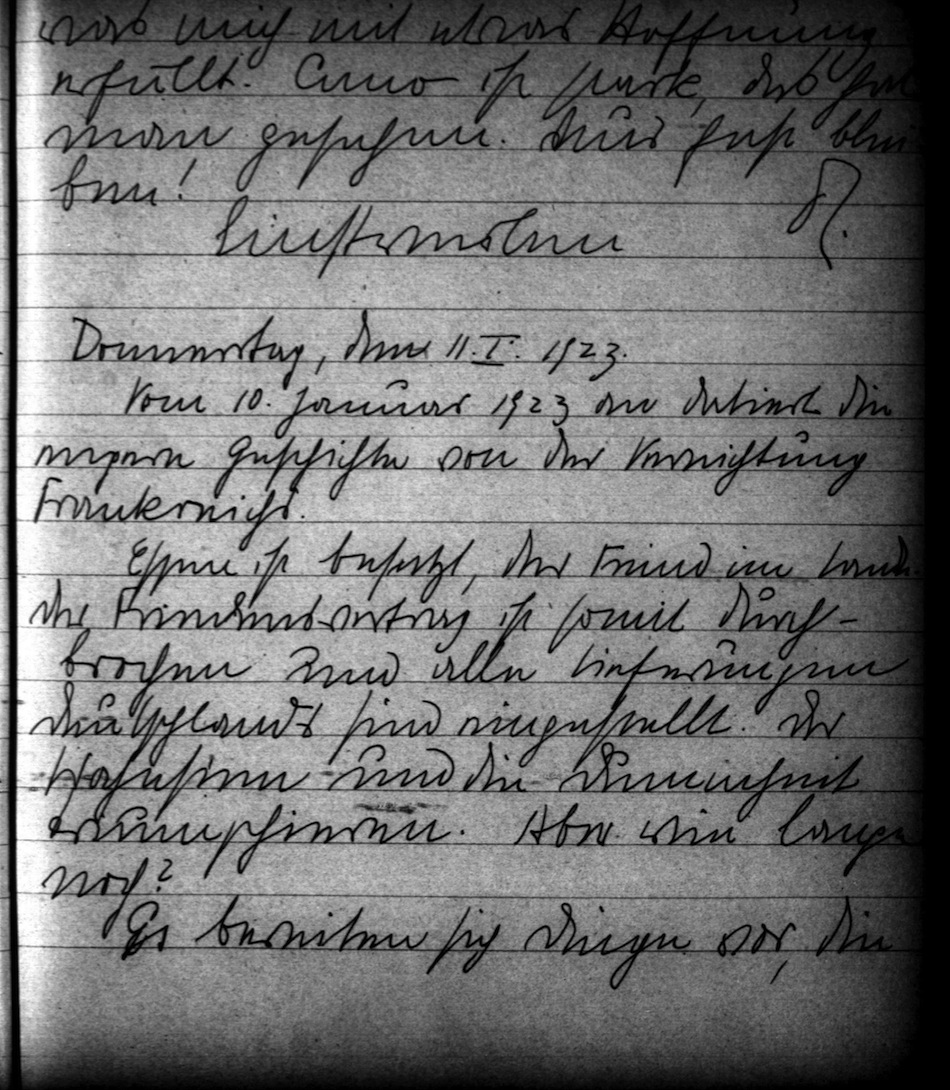 was mich mit etwas Hoffnung
erfüllt. Cuno ist stark, das hat
man gesehen. Nur fest blei
ben!
Donnerstag, den 11.I. 1923.
Vom 10. Januar 1923 an datiert die
neuere Geschichte von der Vernichtung
Frankreichs.
Essen ist besetzt, der Feind im Land.
der Friedensvertrag ist somit durch-
brochen und alle Lieferungen
Deutschlands sind eingestellt. Der
Wahnsinn und die Dummheit
triumphieren. Aber wie lange
noch?
Es bereiten sich Dinge vor, die